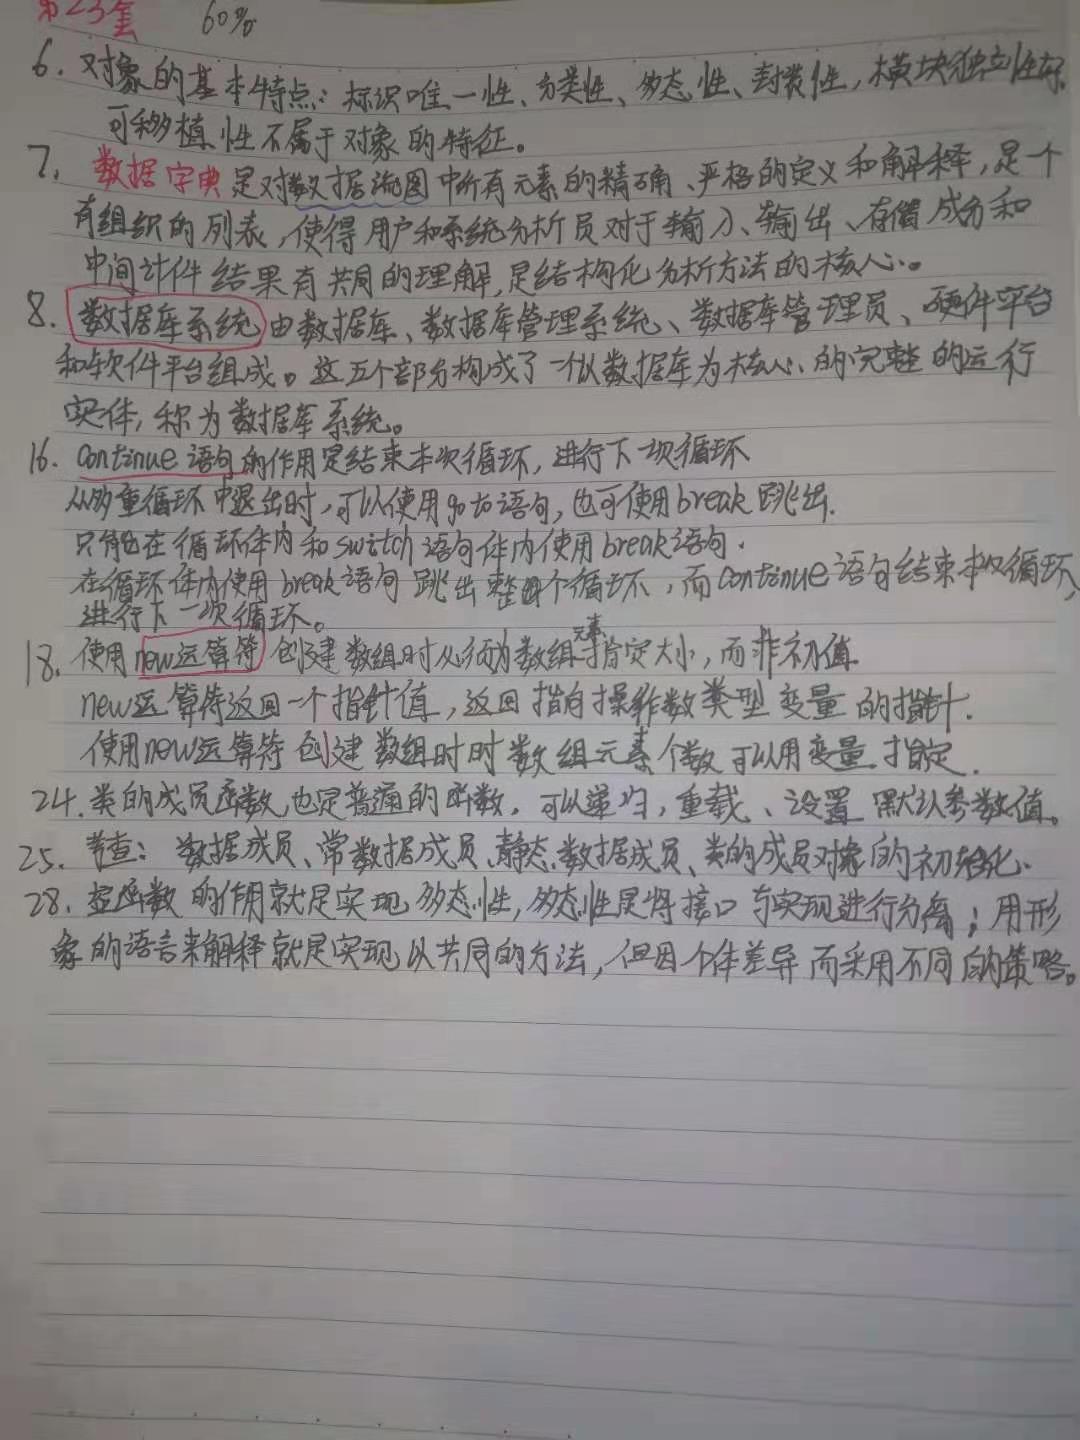 第23套 60%
6. 对象的基本特点：标识唯一性、分类性、多态性、封装性，模块独立性好.
可移植性不属于对象的特征。
7. 数据字典是对数据流图中所有元素的精确、严格的定义和解释，是一个
有组织的列表，使得用户和系统分析员对于输入、输出、存储成分和
中间计件结果有共同的理解，是结构化分析方法的核心。
8. 数据库系统由数据库、数据库管理系统、数据库管理员、硬件平台
和软件平台组成。这五个部分构成了一个以数据库为核心的完整的运行
实体，称为数据库系统。
16. continue语句的作用是结束本次循环，进行下一次循环
从多重循环中退出时，可以使用goto语句，也可使用break跳出.
只能在循环体内和switch语句体内使用break语句.
在循环体内使用break语句跳出整个循环，而continue语句结束本次循环，
进行下一次循环。
18. 使用new运算符创建数组时必须为数组元素指定大小，而非初值
new运算符返回一个指针值，返回指向操作数类型变量的指针.
使用new运算符创建数组时时数组元素个数可以用变量指定.
24. 类的成员函数也是普通的函数，可以递归，重载、设置默认参数值。
25. 考查：数据成员、常数据成员、静态数据成员、类的成员对象的初始化.
28. 虚函数的作用就是实现多态性，多态性是将接口与实现进行分离；用形
象的语言来解释就是实现以共同的方法，但因个体差异而采用不同的策略。